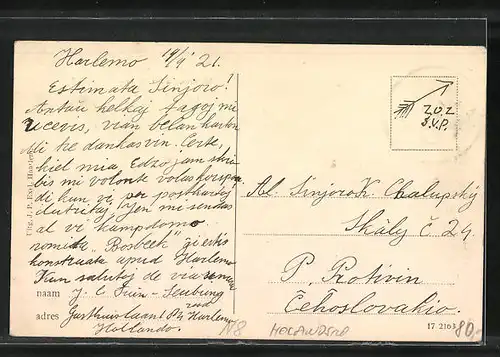 Harlemo 19/9 21.
Estimata Sinjoro!
Antaŭ kelkaj tagoj mi
ricevis, vian belan karton
Mi tre dankas vin. Certe,
kiel mia Edzo, jam skri-
bis mi volonte volas korespon
di kun vi, per poŝtkartoj
ilustritaj. Jen mi sendas
al vi kampdomo
nomita "Bosbeek" ĝi estis
konstruata apud Harlemo
Kun salutoj de via
naam J. C. Tuin-Seubring
adres Gasthuislaan 84 rood Harlemo
Hollando.
Uitg. J. P. Exel, Haarlem
Z.O.Z.
S.V.P.
Al. Sinjoro K. Chalupský
Skály č 24
P. Protivin
Ĉeĥoslovakio.
N8
HOLANDSKO
17 2163
80,-